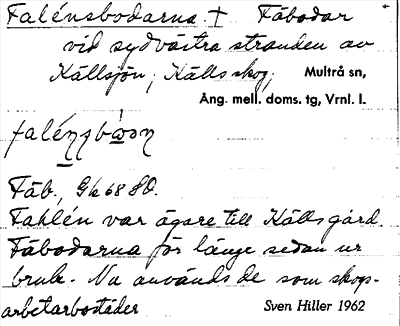 Falénsbodarna. † Fäbodar
vid sydvästra stranden av
Källsjön, Källs skog. Multrå sn,
Ång. mell. doms. tg, Vrnl. l.
Fäb., Gk 68 SO.
Fahlén var ägare till Källsgård.
Fäbodarna för länge sedan ur
bruk. Nu användes de som skogs-
arbetarbostäder Sven Hiller 1962